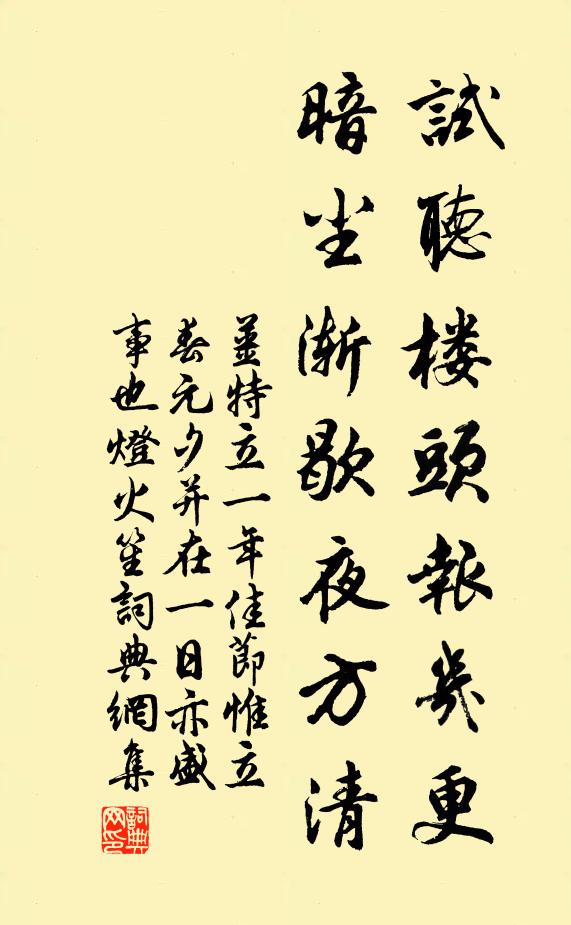 試聴楼頭報幾更
暗尘漸歇夜方清
薑特立一年佳節惟立
春元夕并在一日亦盛
事也燈火笙詞典網集
詞典网印